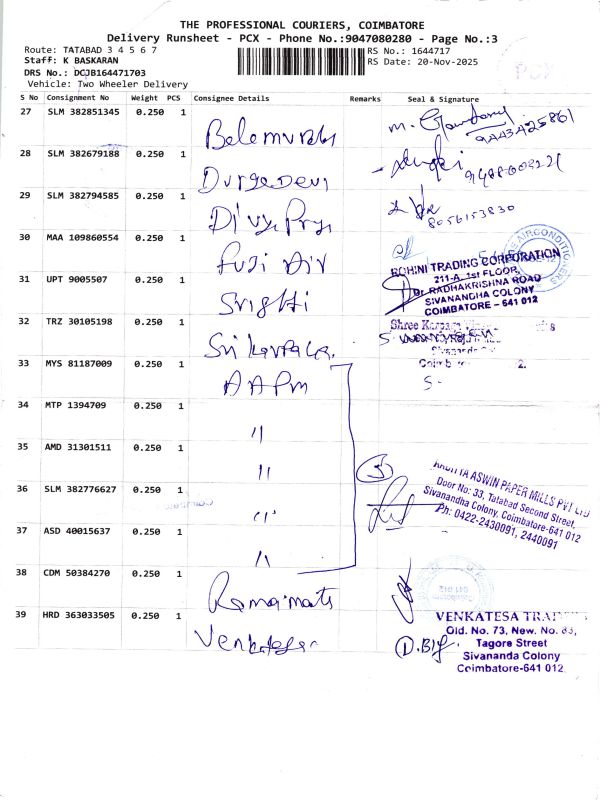 THE PROFESSIONAL COURIERS, COIMBATORE
Delivery Runsheet - PCX - Phone No.:9047080280 - Page No.:3
Route: TATABAD 3 4 5 6 7
RS No.: 1644717
Staff: K BASKARAN
RS Date: 20-Nov-2025
DRS No.: DCJB164471703
Vehicle: Two Wheeler Delivery
PCX
S No Consignment No Weight PCS Consignee Details Remarks Seal & Signature
27 SLM 382851345 0.250 1 Balamurali
28 SLM 382679188 0.250 1 Durga Devi
29 SLM 382794585 0.250 1 Divya Priya 8056153830
30 MAA 109860554 0.250 1 Fuji Air
ROHINI TRADING CORPORATION
211-A, 1st FLOOR,
Dr. RADHAKRISHNA ROAD
SIVANANDHA COLONY
COIMBATORE - 641 012
31 UPT 9005507 0.250 1 Srishti
32 TRZ 30105198 0.250 1 Sri Karpaga
Shree Karpaga
33 MYS 81187009 0.250 1 AAPM
34 MTP 1394709 0.250 1 "
35 AMD 31301511 0.250 1 "
36 SLM 382776627 0.250 1 "
37 ASD 40015637 0.250 1 "
5
ASWIN PAPER MILLS PVT LTD
Door No: 33, Tatabad Second Street,
Sivanandha Colony, Coimbatore-641 012
Ph: 0422-2430091, 2440091
38 CDM 50384270 0.250 1
39 HRD 363033505 0.250 1 Venkatesa
VENKATESA TRADERS
Old. No. 73, New. No. 63,
Tagore Street
Sivananda Colony
Coimbatore-641 012.